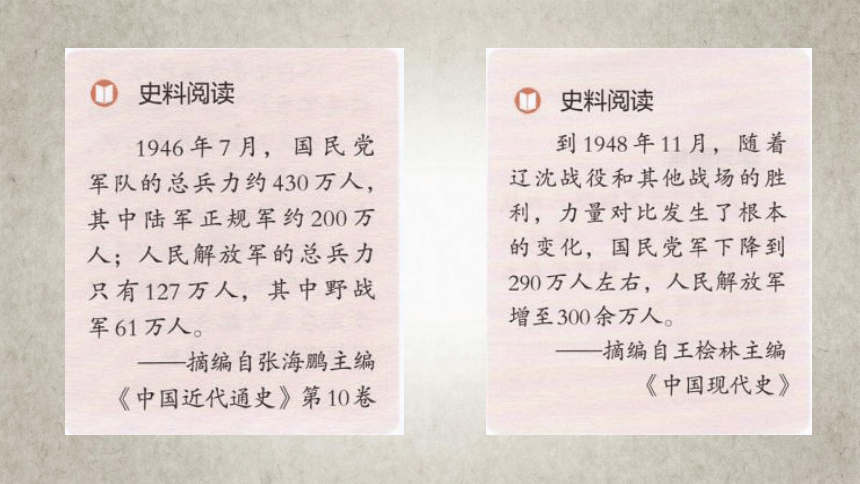 史料阅读
1946年7月，国民党
军队的总兵力约430万人，
其中陆军正规军约200万
人；人民解放军的总兵力
只有127万人，其中野战
军61万人。
——摘编自张海鹏主编
《中国近代通史》第10卷
史料阅读
到1948年11月，随着
辽沈战役和其他战场的胜
利，力量对比发生了根本
的变化，国民党军下降到
290万人左右，人民解放军
增至300余万人。
——摘编自王桧林主编
《中国现代史》